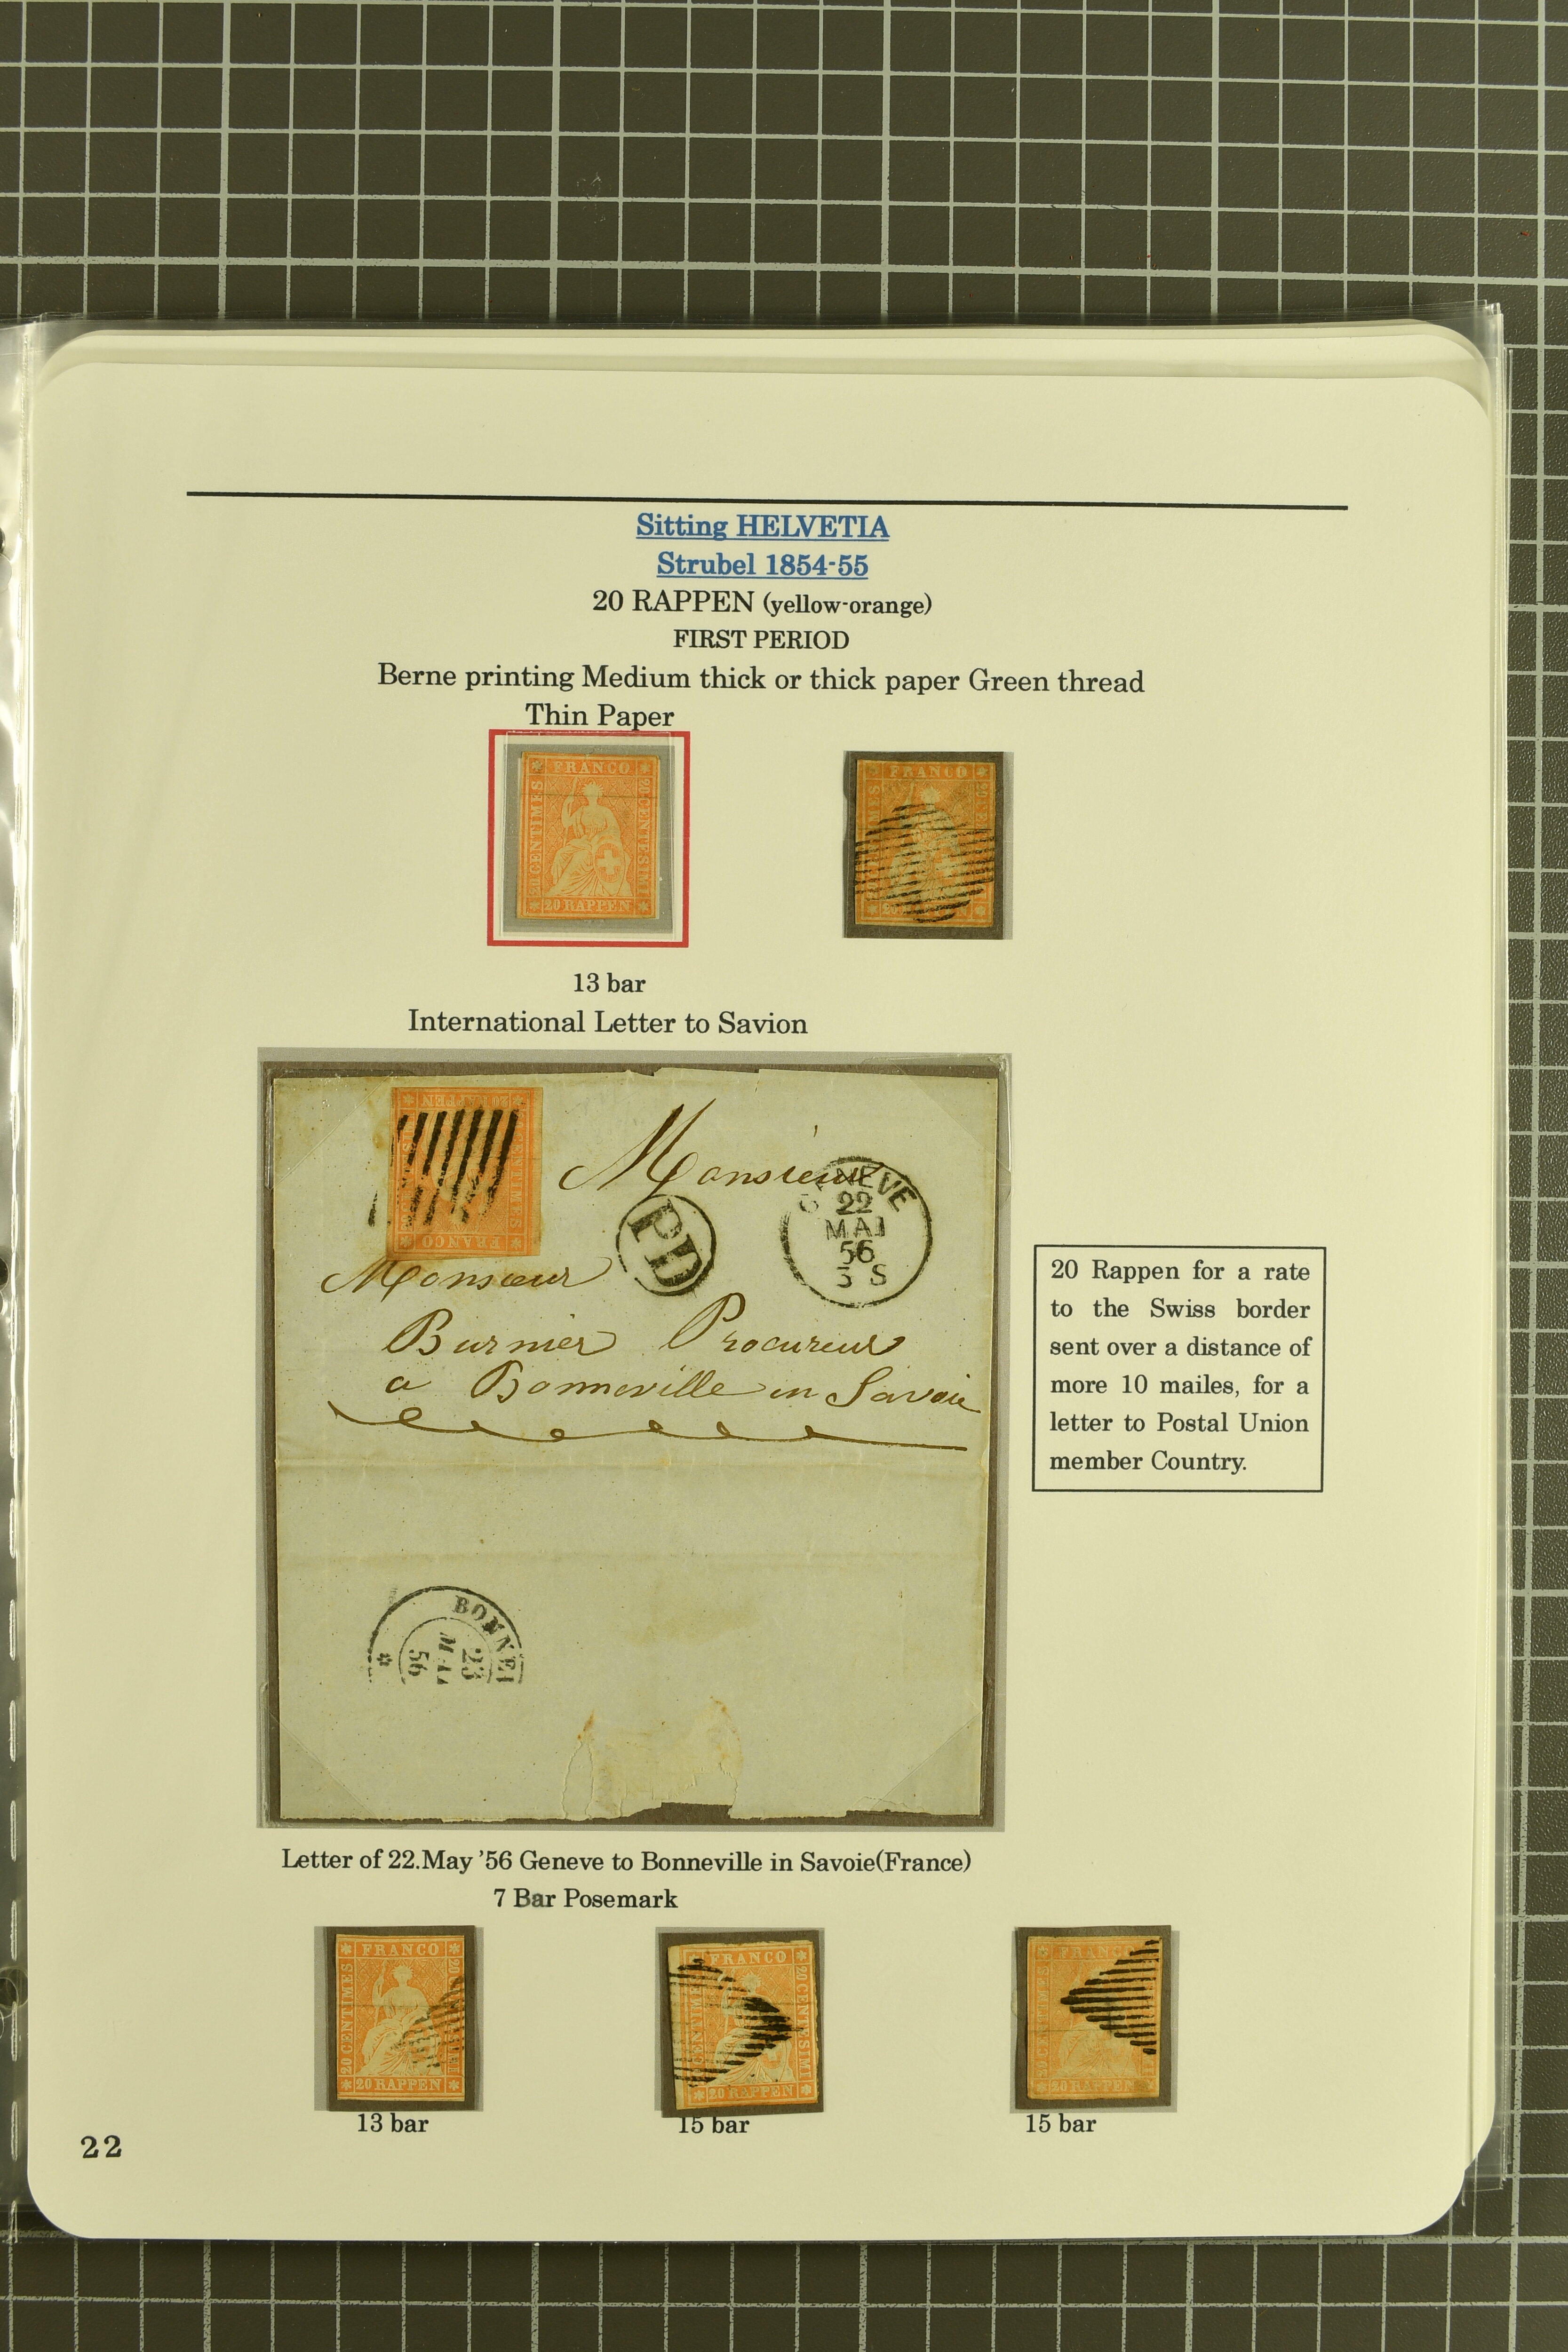 Sitting HELVETIA
Strubel 1854-55
20 RAPPEN (yellow-orange)
FIRST PERIOD
Berne printing Medium thick or thick paper Green thread
Thin Paper
FRANCO
20 CENTIMES
20 CENTESIMI
20 RAPPEN
FRANCO
13 bar
International Letter to Savion
20 RAPPEN
FRANCO
Monsieur
GENEVE
22
MAI
56
3 S
PD
Monsieur
Burnier Procureur
a Bonneville en Savoie
20 Rappen for a rate
to the Swiss border
sent over a distance of
more 10 mailes, for a
letter to Postal Union
member Country.
BONNE
23
MAI
56
Letter of 22.May '56 Geneve to Bonneville in Savoie(France)
7 Bar Posemark
FRANCO
20 CENTIMES
20 RAPPEN
FRANCO
CENTIMES
20 CENTESIMI
20 RAPPEN
FRANCO
20 CENTIMES
20 RAPPEN
13 bar
15 bar
15 bar
22